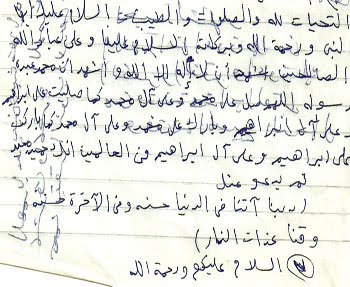 التحيات لله والصلوات والطيبات السلام عليك أيها
النبي ورحمة الله وبركاته السلام علينا وعلى عباد الله
الصالحين أشهد أن لا إله إلا الله وأشهد أن محمد عبده و
رسوله اللهم صل على محمد وعلى آل محمد كما صليت على ابراهيم
وعلى آل ابراهيم وبارك على محمد وعلى آل محمد كما باركت
على ابراهيم وعلى آل ابراهيم في العالمين انك حميد مجيد
ثم يدعو
(ربنا آتنا في الدنيا حسنه وفي الآخرة حسنه
وقنا عذاب النار)
السلام عليكم ورحمة الله